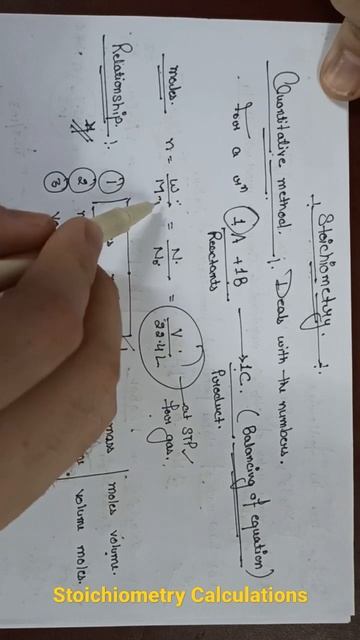 Stoichiometry
Quantitative method. Deals with the numbers.
for a
1A + 1B → 1C. (Balancing of equation)
Reactants Product.
moles. n = w = N = V at STP ✓
22.4 L for gas.
Relationship
1 mass moles volume.
2 volume moles.
3
Stoichiometry Calculations